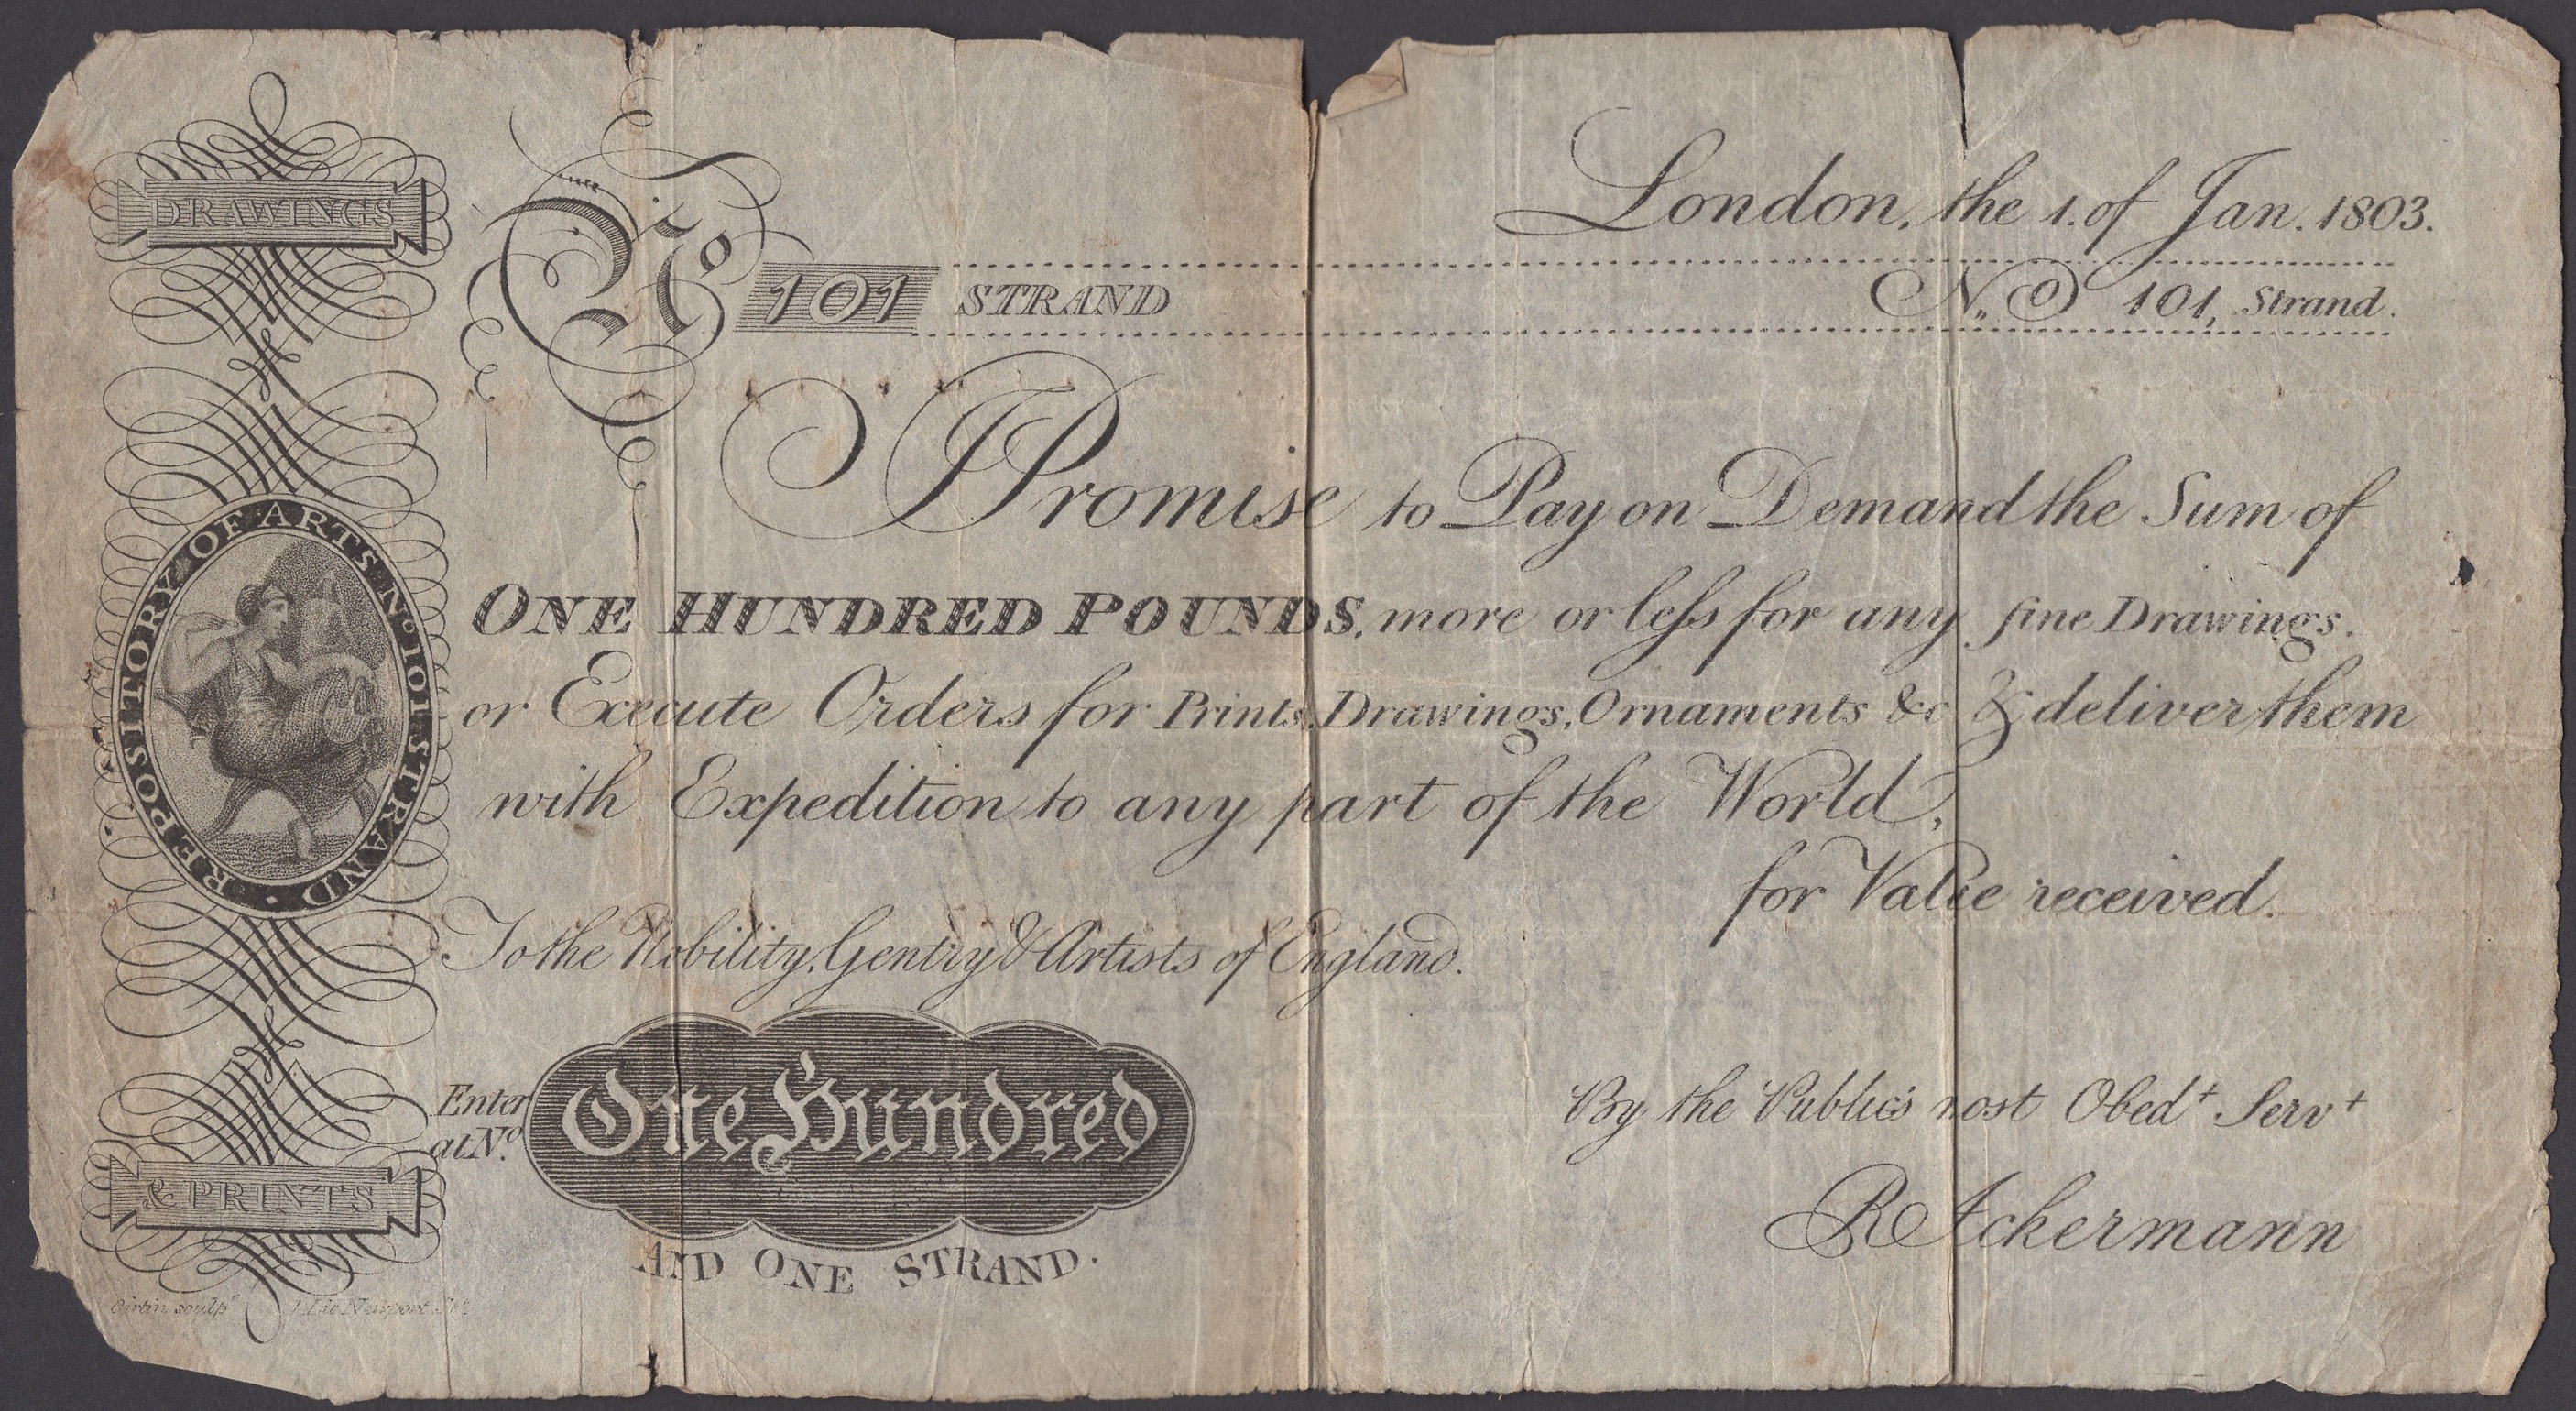 DRAWINGS
London, the 1. of Jan. 1803.
No 101 STRAND
N.o 101, Strand.
REPOSITORY OF ARTS No 101 STRAND.
I Promise to Pay on Demand the Sum of
ONE HUNDRED POUNDS, more or less for any fine Drawings,
or Execute Orders for Prints, Drawings, Ornaments &c & deliver them
with Expedition to any part of the World,
for Value received.
To the Nobility, Gentry & Artists of England.
Enter
at No.
One Hundred
AND ONE STRAND.
By the Public's most Obedt Servt
R Ackermann
& PRINTS
Girtin sculpt Newport